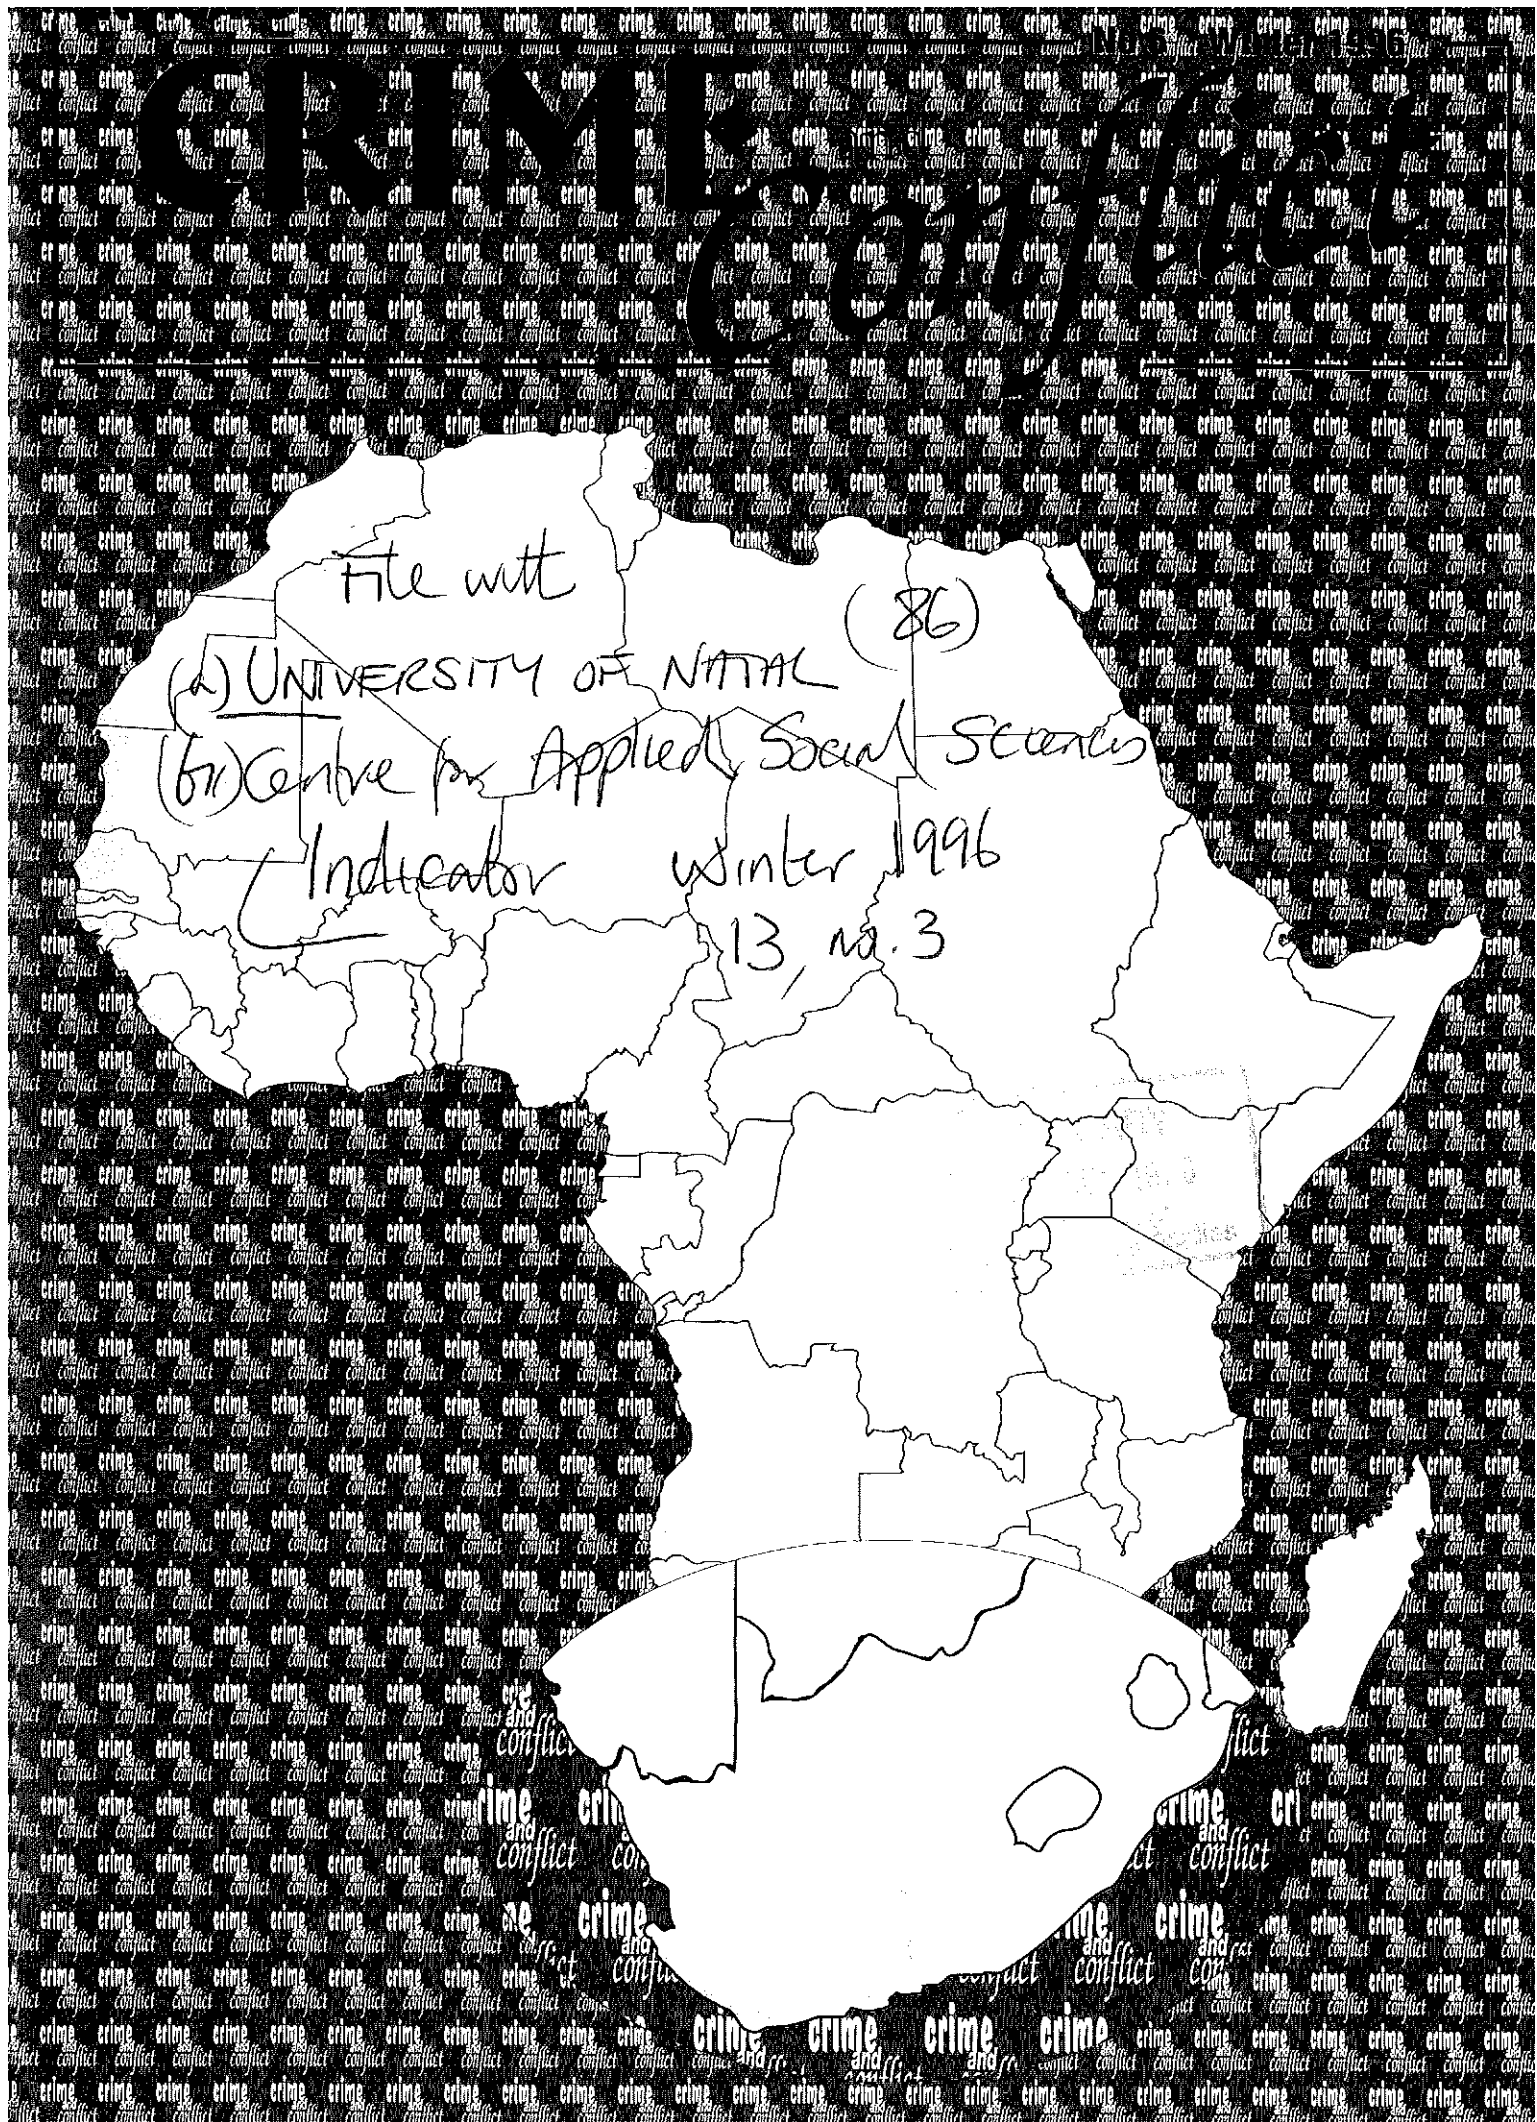 No 6 Winter 1996
CRIME
Conflict
File with
(86)
(a) UNIVERSITY OF NATAL
Centre for Applied Social Sciences
Indicator Winter 1996
13, no. 3
crime and conflict